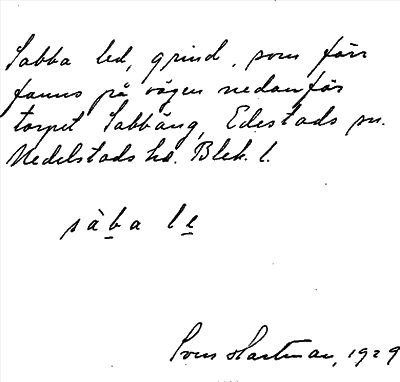 Sabba led, grind, som förr
fanns på vägen nedanför
torpet Sabbäng, Edestads sn.
Medelstads hd. Blek. l.
sàba le
Sven Hartman, 1929